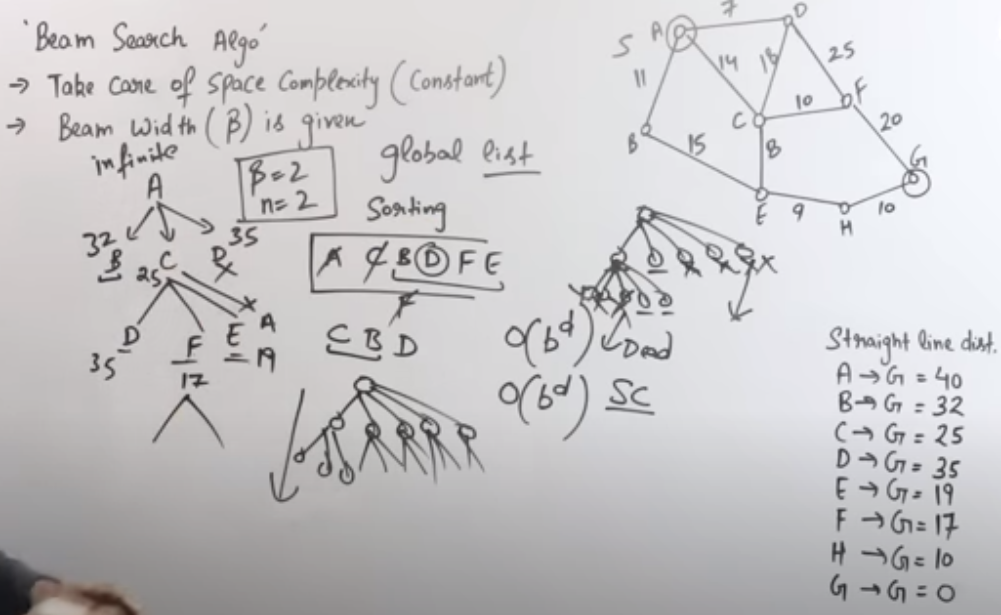 'Beam Search Algo'
→ Take care of Space Complexity (Constant)
→ Beam Width (β) is given
infinite
β = 2
n = 2
global list
Sorting
A C B D F E
F
C B D
A
32
B
C
25
D
35
D
35
F
17
E
19
A
O(b^d)
Dead
O(b^d) SC
S
A
7
D
11
14
18
25
B
C
10
F
15
8
20
E
9
H
10
G
Straight line dist.
A → G = 40
B → G = 32
C → G = 25
D → G = 35
E → G = 19
F → G = 17
H → G = 10
G → G = 0